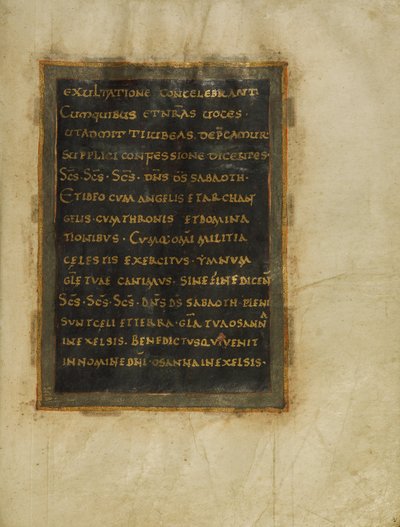 EXULTATIONE CONCELEBRANT
CUMQUIBUS ET NR̄AS UOCES
UTADMITTIIUBEAS DEP̄CAMUR
SUPPLICI CONFESSIONE DICENTES·
SC̄S· SC̄S· SC̄S· DN̄S DS̄ SABAOTH·
ETIDEO CUM ANGELIS ETARCHAN
GELIS· CUMTHRONIS ETDOMINA
TIONIBUS· CUMQ· OMI MILITIA
CELESTIS EXERCITUS· YMNUM
GLE TUAE CANIMUS· SINE FINE DICEN̄
SC̄S· SC̄S· SC̄S· DN̄S DS̄ SABAOTH· PLENI
SUNTCELI ETTERRA· GLĀ TUA OSANNA
INEXELSIS· BENEDICTUSQUIVENIT
INNOMINE DN̄I· OSANNAINEXELSIS·